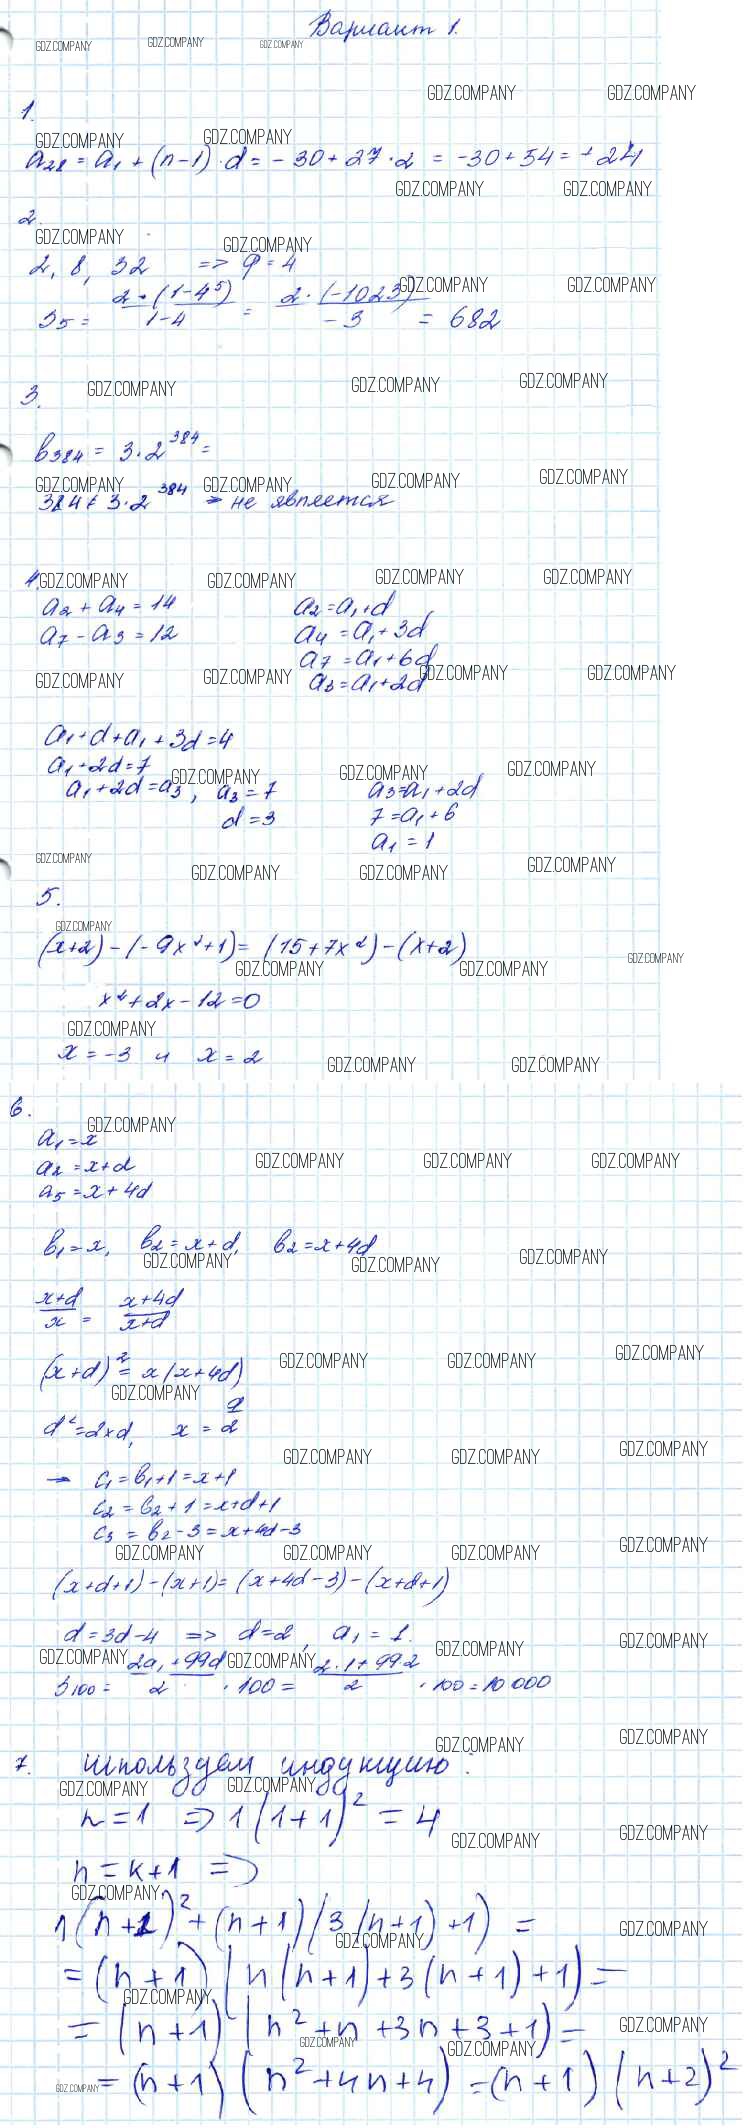 Вариант 1.
1.
a₂₈ = a₁ + (n-1)·d = -30 + 27·2 = -30 + 54 = +24
2.
2, 8, 32 => q = 4
S₅ = 2·(1-4⁵)/1-4 = 2·(-1023)/-3 = 682
3.
b₃₈₄ = 3·2³⁸⁴ =
384 ≠ 3·2³⁸⁴ → не является
4.
a₂ + a₄ = 14 a₂ = a₁ + d
a₇ - a₃ = 12 a₄ = a₁ + 3d
a₇ = a₁ + 6d
a₃ = a₁ + 2d
a₁ + d + a₁ + 3d = 4
a₁ + 2d = 7
a₁ + 2d = a₃, a₃ = 7 a₃ = a₁ + 2d
d = 3 7 = a₁ + 6
a₁ = 1
5.
(x+2) - (-9x²+1) = (15+7x²) - (x+2)
x² + 2x - 12 = 0
x = -3 и x = 2
6.
a₁ = x
a₂ = x + d
a₅ = x + 4d
b₁ = x, b₂ = x + d, b₂ = x + 4d
x+d/x = x+4d/x+d
(x+d)² = x(x+4d)
d² = 2xd, x = d/2
→ c₁ = b₁ + 1 = x + 1
c₂ = b₂ + 1 = x + d + 1
c₃ = b₂ - 3 = x + 4d - 3
(x+d+1) - (x+1) = (x+4d-3) - (x+d+1)
d = 3d - 4 => d = 2, a₁ = 1.
S₁₀₀ = 2a₁+99d/2 · 100 = 2·1+99·2/2 · 100 = 10 000
7. используем индукцию:
n = 1 => 1(1+1)² = 4
n = k+1 =>
n(n+1)² + (n+1)(3(n+1)+1) =
= (n+1)(n(n+1)+3(n+1)+1) =
= (n+1)(n²+n+3n+3+1) =
= (n+1)(n²+4n+4) = (n+1)(n+2)²
GDZ.COMPANY